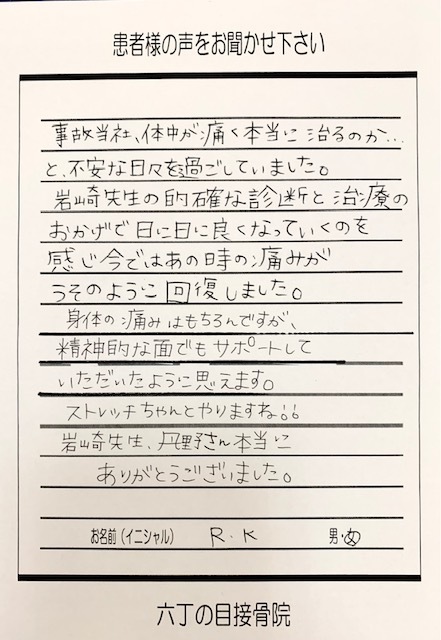 患者様の声をお聞かせ下さい
事故当社、体中が痛く本当に治るのか…
と、不安な日々を過ごしていました。
岩崎先生の的確な診断と治療の
おかげで日に日に良くなっていくのを
感じ今ではあの時の痛みが
うそのように回復しました。
身体の痛みはもちろんですが、
精神的な面でもサポートして
いただいたように思えます。
ストレッチちゃんとやりますね!!
岩崎先生、丹野さん本当に
ありがとうございました。
お名前(イニシャル) R.K 男・女
六丁の目接骨院